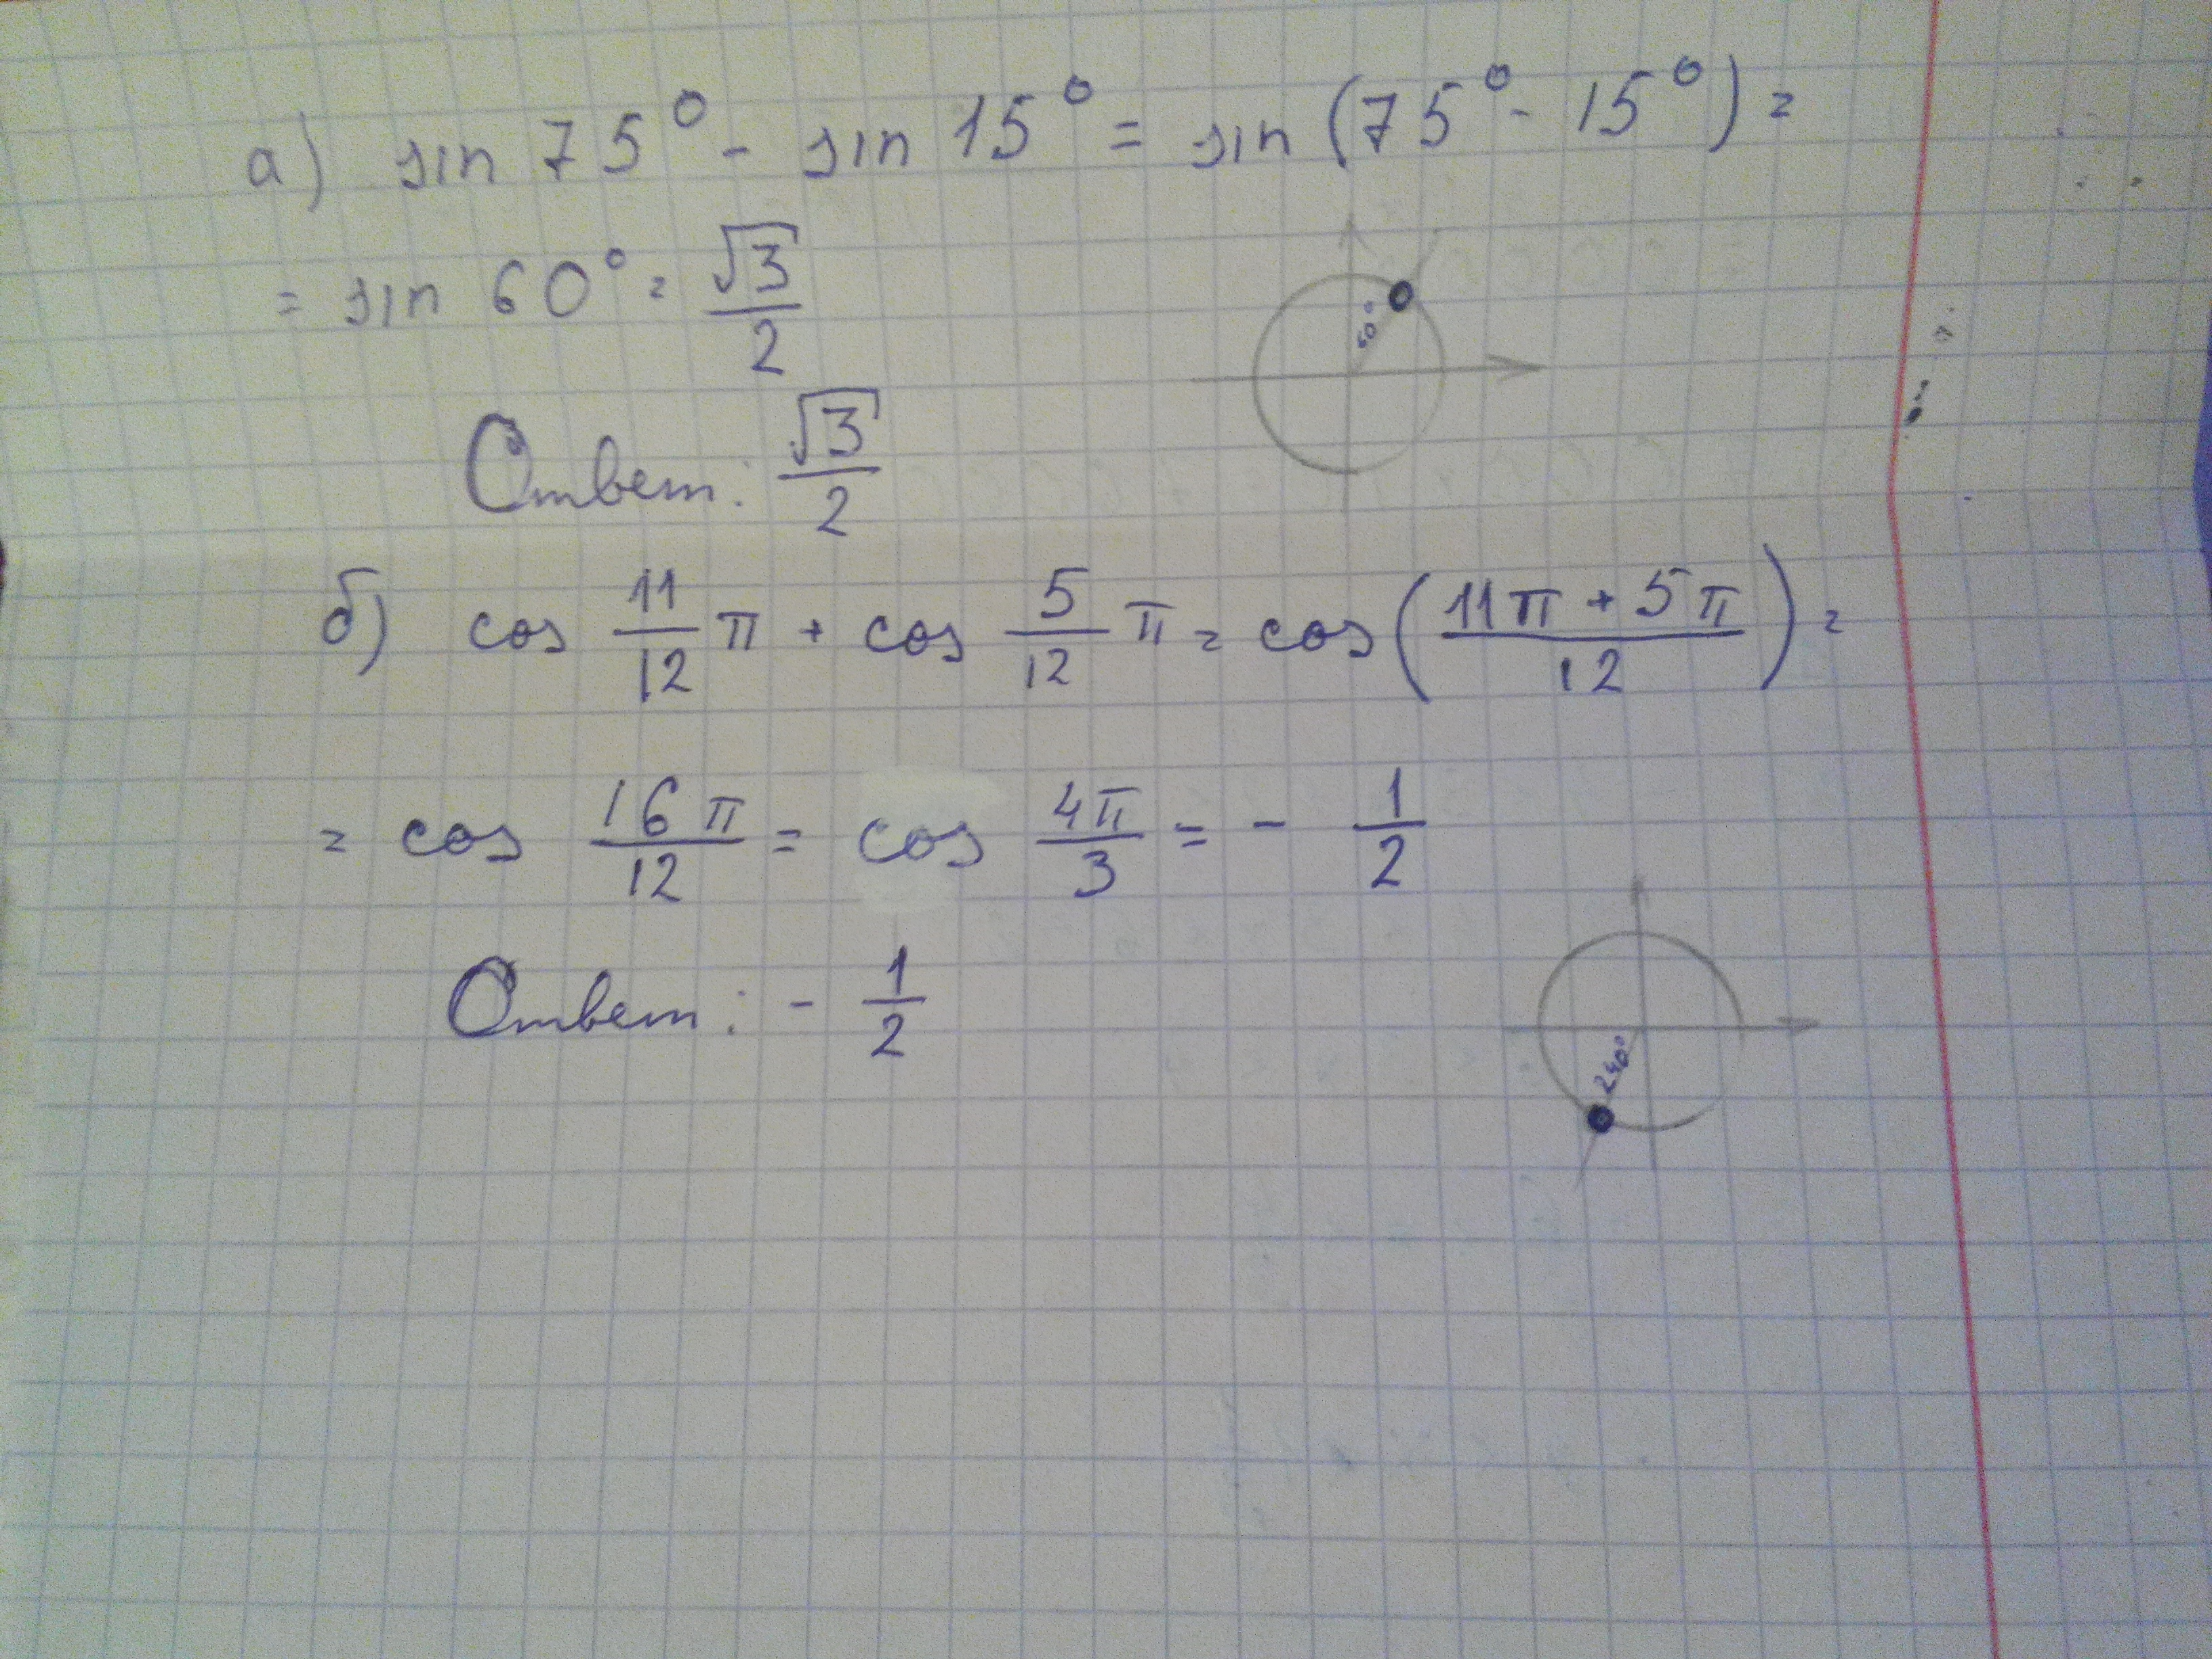 а) sin 75° - sin 15° = sin (75° - 15°) =
= sin 60° = √3/2
60°
Ответ: √3/2
б) cos 11/12 π + cos 5/12 π = cos (11π + 5π / 12) =
= cos 16π/12 = cos 4π/3 = - 1/2
Ответ: - 1/2
240°